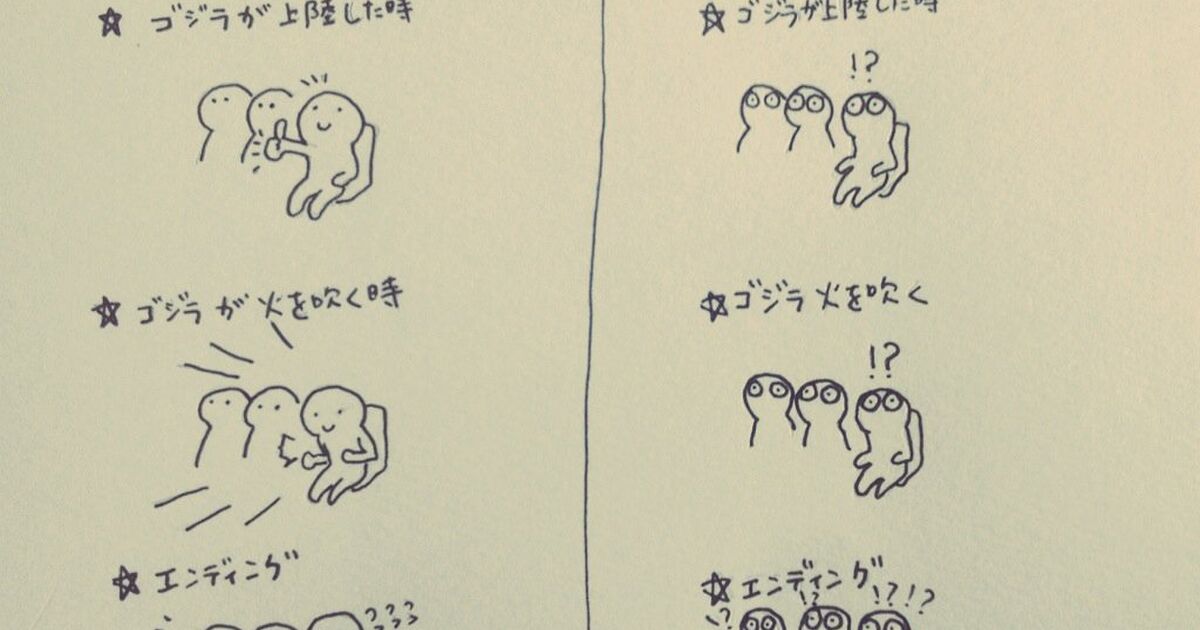 ☆ ゴジラが上陸した時
☆ ゴジラが火を吹く時
☆ エンディング
???
☆ ゴジラが上陸した時
!?
☆ ゴジラ火を吹く
!?
☆ エンディング
!?
!?!?
!?